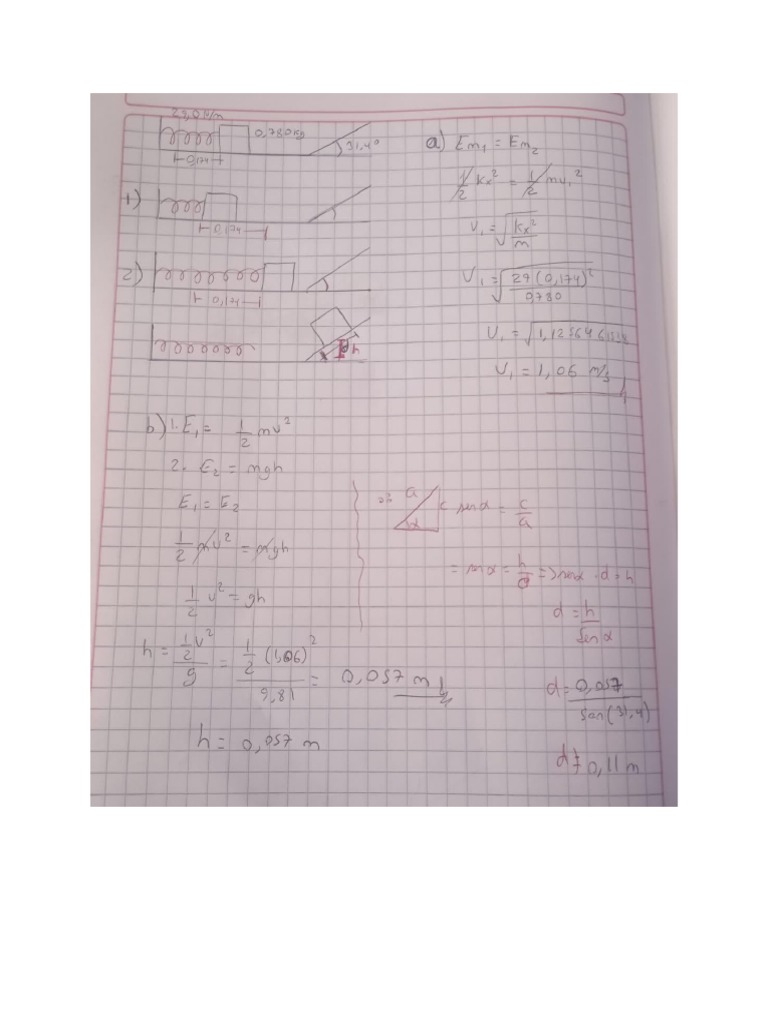 29,0 N/m
0,780 kg
31,4°
0,174
1)
0,174
2)
0,174
h
a) Em₁ = Em₂
1/2 kx² = 1/2 mv₁²
V₁ = √(kx²/m)
V₁ = √(29(0,174)²/0,780)
V₁ = √1,12564615
V₁ = 1,06 m/s
b) 1. E₁ = 1/2 mv²
2. E₂ = mgh
E₁ = E₂
1/2 mv² = mgh
1/2 v² = gh
h = (1/2 v²)/g = (1/2 (1,06)²)/9,81 = 0,057 m
h = 0,057 m
a
c
α
sen α = c/a
= sen α = h/d => sen α · d = h
d = h/Sen α
d = 0,057/San(31,4)
d = 0,11 m